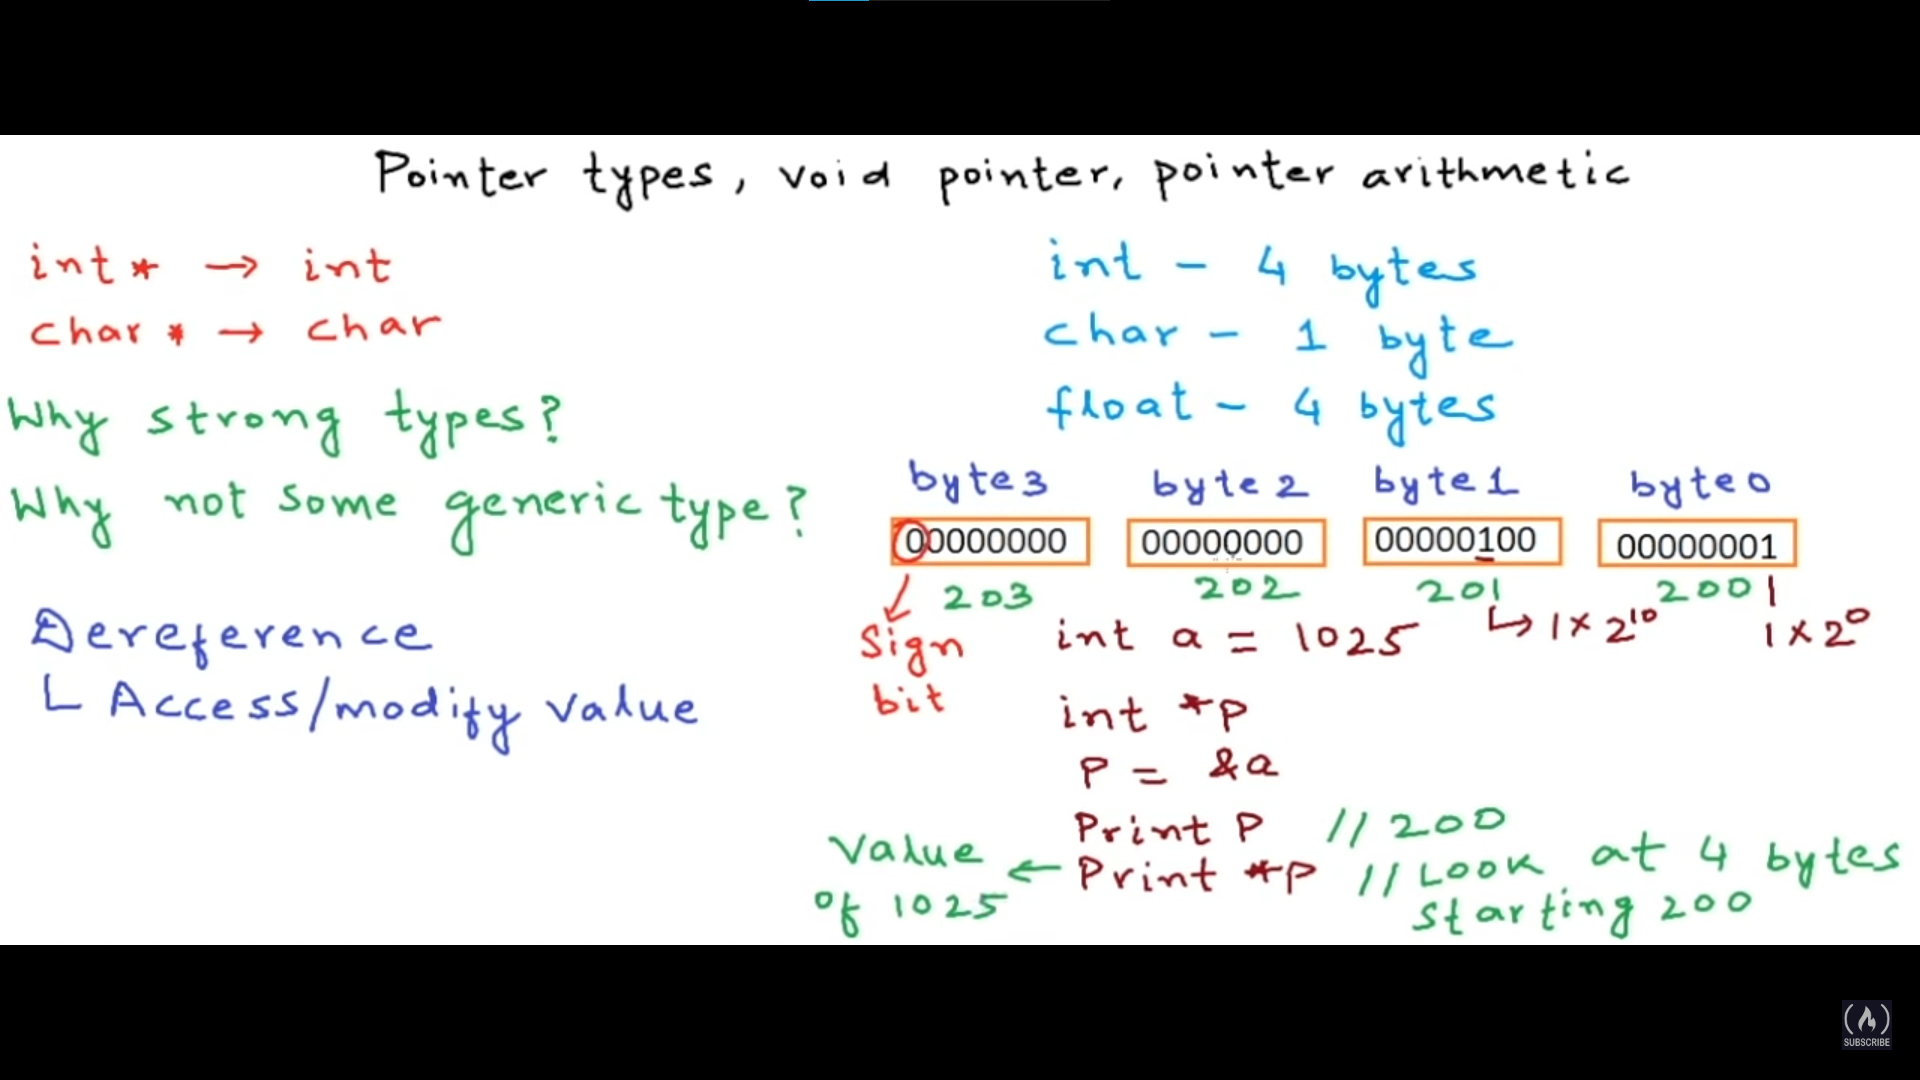 Pointer types, void pointer, pointer arithmetic
int * → int
char * → char
Why strong types?
Why not some generic type?
Dereference
Access/modify value
int - 4 bytes
char - 1 byte
float - 4 bytes
byte3 byte2 byte1 byte0
00000000 00000000 00000100 00000001
203 202 201 200
Sign bit
int a = 1025 ↳ 1 x 2^10 1 x 2^0
int *p
P = &a
Print P // 200
Print *p // Look at 4 bytes
starting 200
Value ←
of 1025
SUBSCRIBE